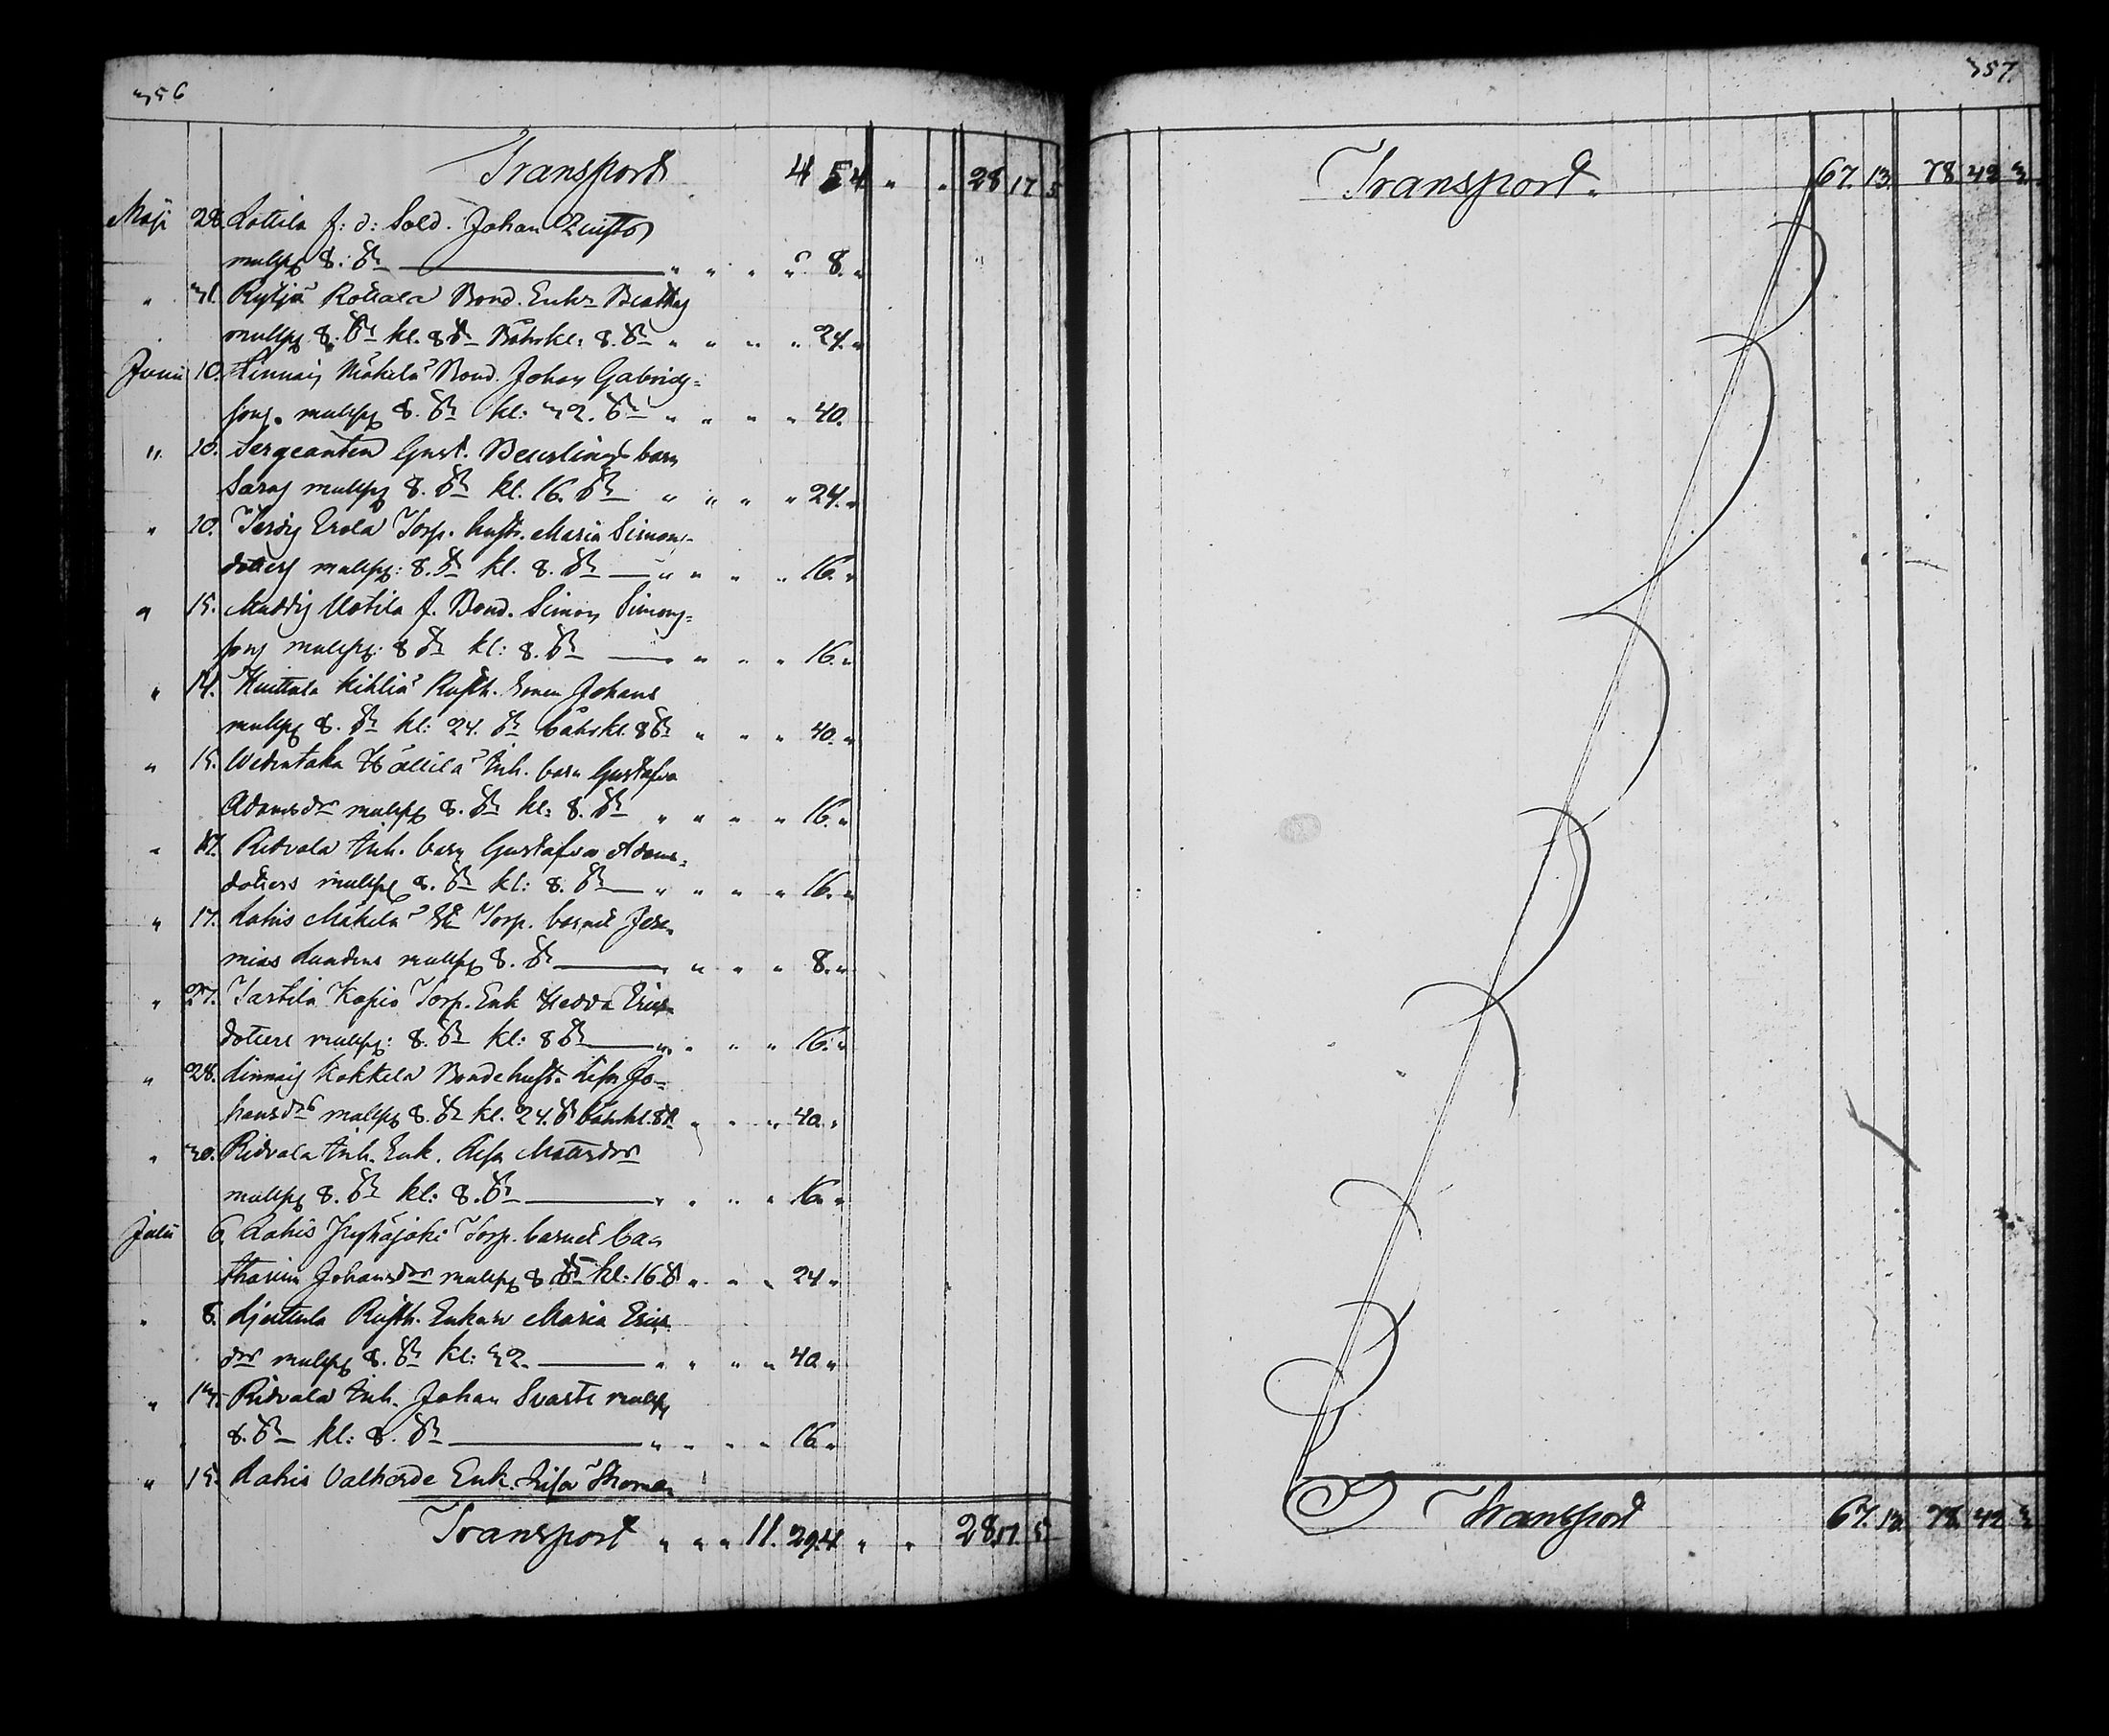 356
Transport 4 5 4 " " 28 17 5
Maji 28. Lottila f: d: Sold. Johan Quist
mullpg 8. ß " " " " 8. "
" 31. Rytjä Rotiala Bond. Enk Beatas
mullpg 8. ß kl. 8 ß Båhrkl: 8. ß " " " " 24. "
Junii 10. Linnais Mäkelä Bond. Johan Gabriels=
sons mullpg 8. ß kl: 32. ß " " " " 40.
" 10. Sergeanten Gust. Beurlings barn
Saras mullpg 8. ß kl. 16. ß " " " " 24. "
" 10. Erola Torp. hust. Maria Simons=
dotters mullpg: 8. ß kl. 8. ß " " " " 16. "
" 15. Uotila f. Bond. Simon Simons=
sons mullpg: 8 ß kl: 8. ß " " " 16. "
" 14. Kuittala Kihliä Rusth. Sonen Johans
mullpg 8. ß kl: 24. ß båhrkl. 8 ß " " " 40. "
" 15. Wedentaka Hällilä Inh. barn Gustafva
Adamsdr mullpg 8. ß kl: 8. ß " " " " 16. "
" 17. Ridvala Inh. barn Gustafva Adams=
dotters mullpg 8. ß kl: 8. ß " " " " 16. "
" 17. Lahis Mäkelä Torp. barnet Jere=
mias mullpg 8. ß " " " " 8. "
" 27. Tarttila Kopis Torp. Enk Hedda Erics=
dotters mullpg: 8. ß kl: 8 ß " " " " 16. "
" 28. Linnais Kokkela Bondehust. Lisa Jo=
hansdrs mullpg 8. ß kl. 24. ß båhrkl. 8 ß " " " 40. "
" 30. Ridvala Inh. Enk. Lisa Matsdr
mullpg 8. ß kl: 8. ß " " " " 16. "
Julii 6. Lahis Torp. barnet Ca=
tharina Johansdr mullpg 8 ß kl: 16 ß " " " 24 "
" 8. Ljuttula Rusth. Enkan Maria Erics
dr mullpg 8. ß kl: 32. " " " " 40 "
" 13. Ridvala Inh. Johan Svarts mullpg
8. ß kl: 8. ß " " " " 16. "
" 15. Lahis Valhorde Enk. Lisa Thoma=
Transport " " " 11. 29. 4 " " 28. 17. 5
357
Transport. 67. 13. 78. 42 3.
Transport 67. 13. 78. 42 3